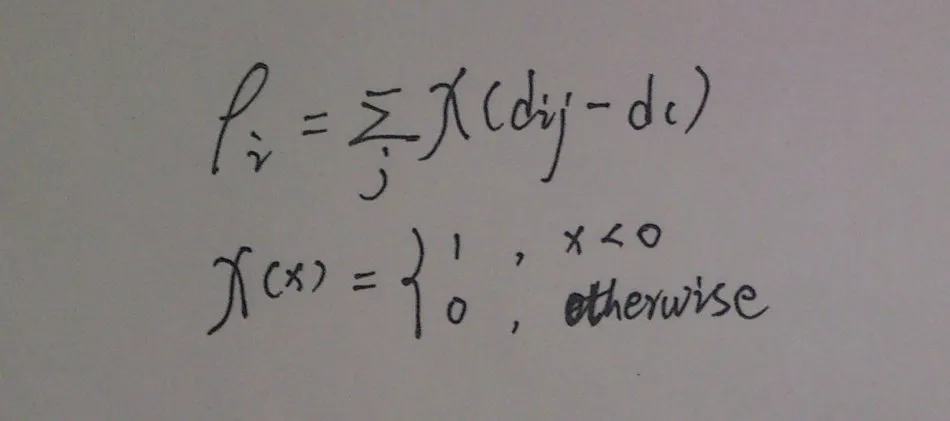 ρᵢ = Σⱼ χ(dᵢⱼ - d꜀)
χ(x) = { 1 , x < 0
0 , otherwise